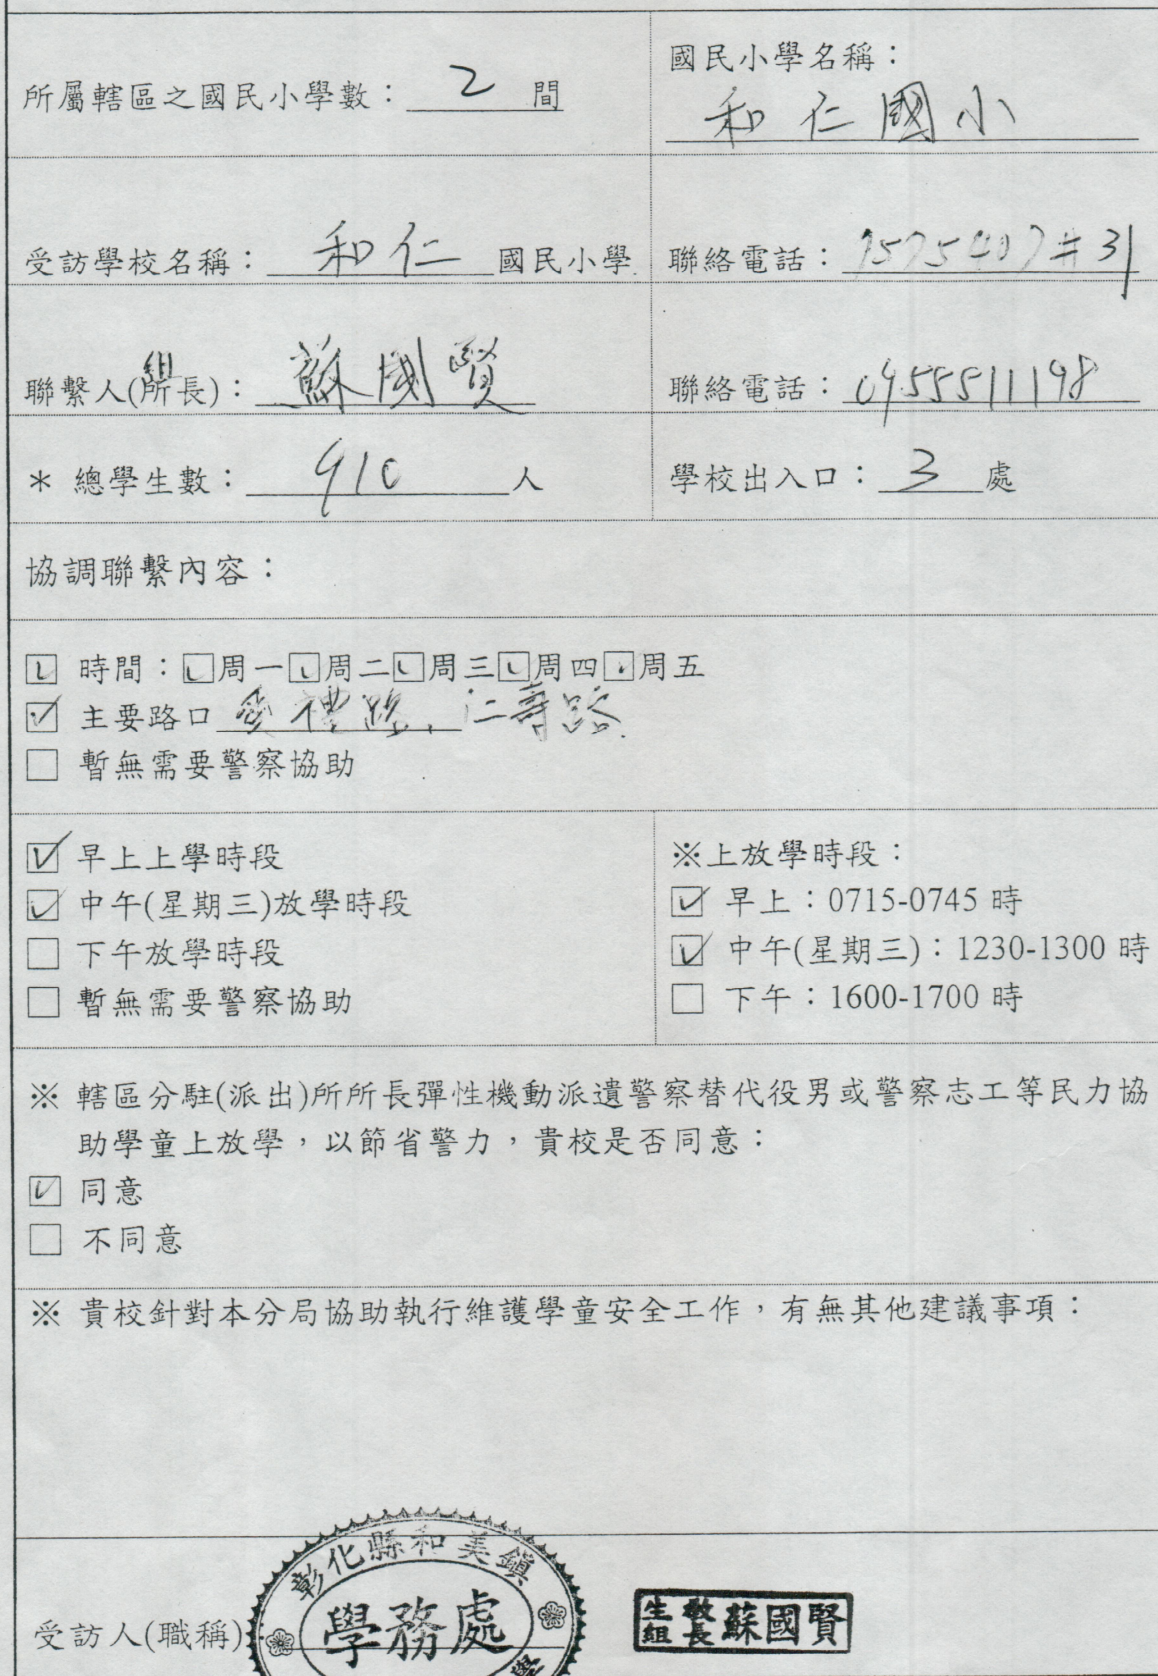 所屬轄區之國民小學數：2 間
國民小學名稱：
和仁國小
受訪學校名稱：和仁 國民小學
聯絡電話：7575407#31
組
聯繫人(所長)：蘇國賢
聯絡電話：0955511198
＊ 總學生數：910 人
學校出入口：3 處
協調聯繫內容：
☑ 時間：☑周一☑周二☑周三☑周四☑周五
☑ 主要路口 愛禮路、仁壽路
☐ 暫無需要警察協助
☑ 早上上學時段
☑ 中午(星期三)放學時段
☐ 下午放學時段
☐ 暫無需要警察協助
※上放學時段：
☑ 早上：0715-0745 時
☑ 中午(星期三)：1230-1300 時
☐ 下午：1600-1700 時
※ 轄區分駐(派出)所所長彈性機動派遣警察替代役男或警察志工等民力協
助學童上放學，以節省警力，貴校是否同意：
☑ 同意
☐ 不同意
※ 貴校針對本分局協助執行維護學童安全工作，有無其他建議事項：
受訪人(職稱)
彰化縣和美鎮
學務處
學
生教組長 蘇國賢